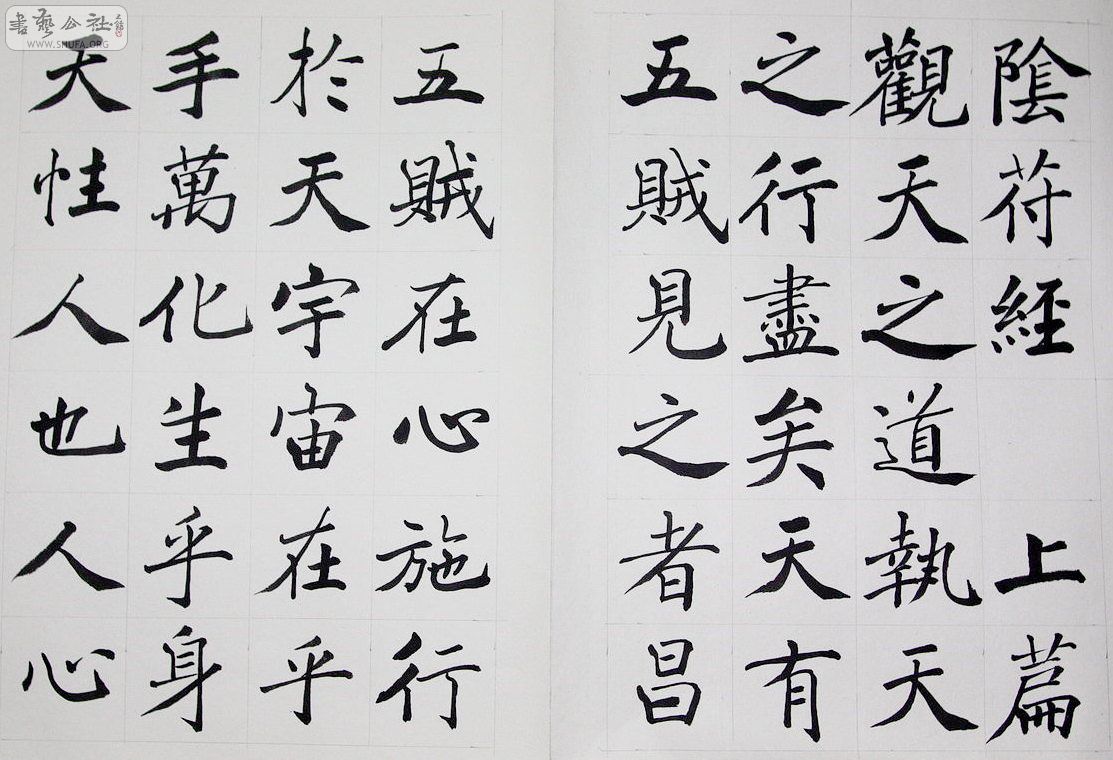 書藝公社
WWW.SHUFA.ORG
陰符經 上篇
觀天之道執天
之行盡矣天有
五賊見之者昌
五賊在心施行
於天宇宙在乎
手萬化生乎身
天性人也人心